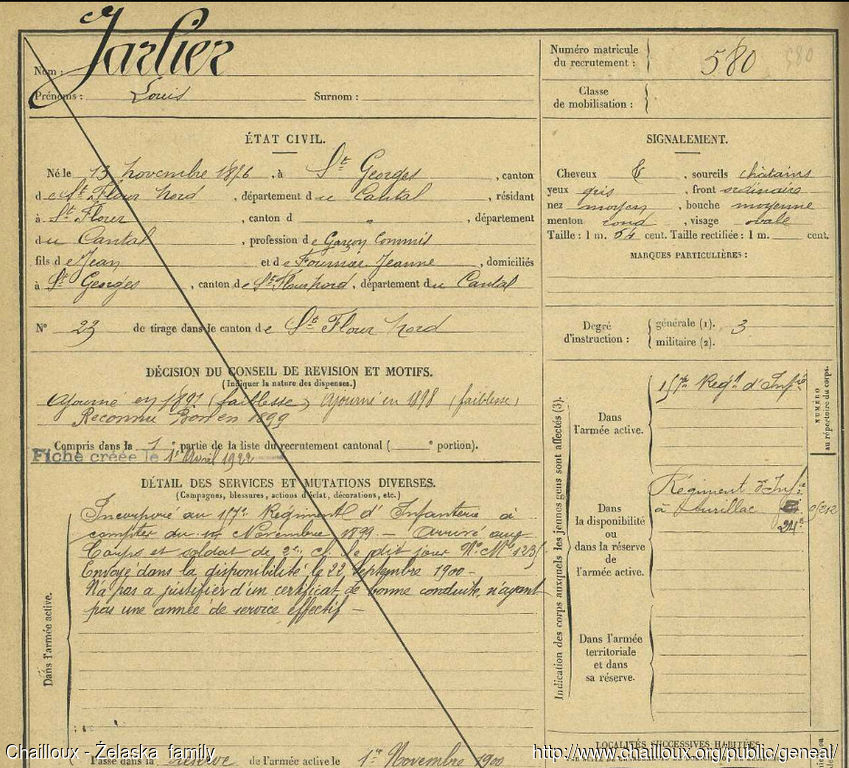 Nom : Jarlier
Prénoms : Louis Surnom :
ÉTAT CIVIL.
Né le 13 novembre 1876, à St Georges, canton
de St Flour Nord, département du Cantal, résidant
à St Flour, canton d " , département
du Cantal, profession de Garçon Commis
fils de Jean et de Jeanne, domiciliés
à St Georges, canton de St Flour nord, département du Cantal
N° 23 de tirage dans le canton de St Flour Nord
DÉCISION DU CONSEIL DE REVISION ET MOTIFS.
(Indiquer la nature des dispenses.)
Ajourné en 1897 (faiblesse) Ajourné en 1898 (faiblesse)
Reconnu Bon en 1899
Compris dans la 1e partie de la liste du recrutement cantonal ( e portion).
Fiche créée le 1er Avril 1922
DÉTAIL DES SERVICES ET MUTATIONS DIVERSES.
(Campagnes, blessures, actions d'éclat, décorations, etc.)
Dans l'armée active.
Incorporé au Régiment d'Infanterie à
compter du Novembre 1899 – arrivé au
Corps et soldat de 2e cl. le dit jour N° Mle
Envoyé dans la disponibilité le 22 Septembre 1900 –
N'a pas a justifier d'un certificat de bonne conduite, n'ayant
pas une année de service effectif –
Passé dans la réserve de l'armée active le 1er Novembre 1900
Numéro matricule
du recrutement : 580
580
Classe
de mobilisation :
SIGNALEMENT.
Cheveux , sourcils châtains
yeux gris , front ordinaire
nez moyen , bouche moyenne
menton rond , visage ovale
Taille : 1 m. 64 cent. Taille rectifiée : 1 m. cent.
MARQUES PARTICULIÈRES :
Degré
d'instruction :
générale (1). 3
militaire (2).
Indication des corps auxquels les jeunes gens sont affectés (3).
NUMÉRO
au répertoire du corps.
Dans
l'armée active.
Regt d'Infie
Dans
la disponibilité
ou dans la réserve
de
l'armée active.
Régiment d'Inf.
à Aurillac
Dans l'armée
territoriale
et dans
sa réserve.
LOCALITÉS SUCCESSIVES HABITÉES
Chailloux - Żelaska family
http://www.chailloux.org/public/geneal/